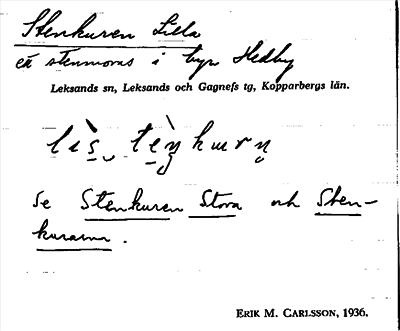 Stenkuren Lilla
en stenmoras i byn Hedby
Leksands sn, Leksands och Gagnefs tg, Kopparbergs län.
Se Stenkuren Stora och Sten-
kurarna.
ERIK M. CARLSSON, 1936.